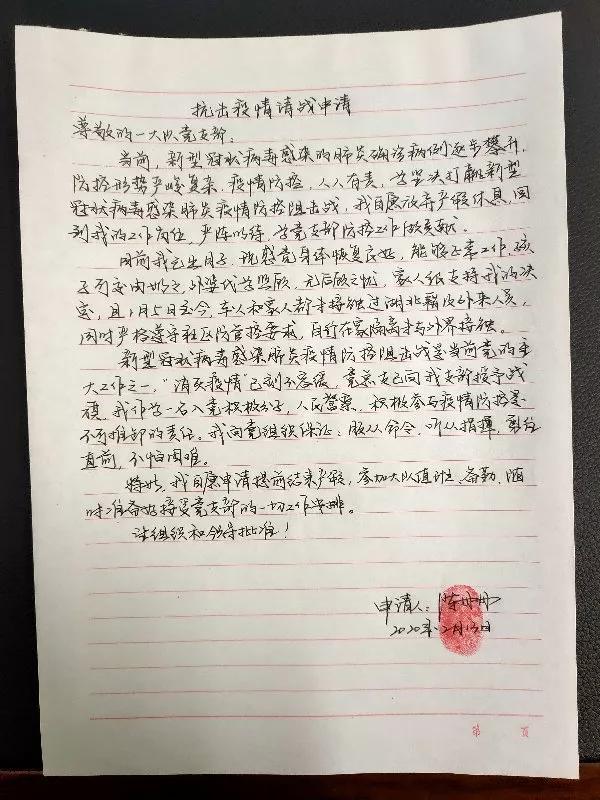 抗击疫情请战申请
尊敬的一大队党支部:
当前,新型冠状病毒感染的肺炎确诊病例逐步攀升,
防控形势严峻复杂,疫情防控,人人有责,为坚决打赢新型
冠状病毒感染肺炎疫情防控阻击战,我自愿放弃产假休息,回
到我的工作岗位,严阵以待,为党支部防控工作做贡献。
目前我已出月子,现感身体恢复良好,能够正常工作,孩
子可交由奶奶、外婆代为照顾,无后顾之忧,家人很支持我的决
定,且1月5日至今,本人和家人都未接触过湖北籍及外来人员,
同时严格遵守社区防控要求,自行在家隔离未与外界接触。
新型冠状病毒感染肺炎疫情防控阻击战是当前党的重
大工作之一,“消灭疫情”已刻不容缓,党总支已向我支部授予战
旗,我作为一名入党积极分子,人民警察,积极参与疫情防控是
不可推卸的责任。我向党组织保证:服从命令、听从指挥,勇往
直前,不怕困难。
特此,我自愿申请提前结束产假,参加大队值班、备勤,随
时准备好接受党支部的一切工作安排。
请组织和领导批准!
申请人:陈
2020年2月13日
第 页